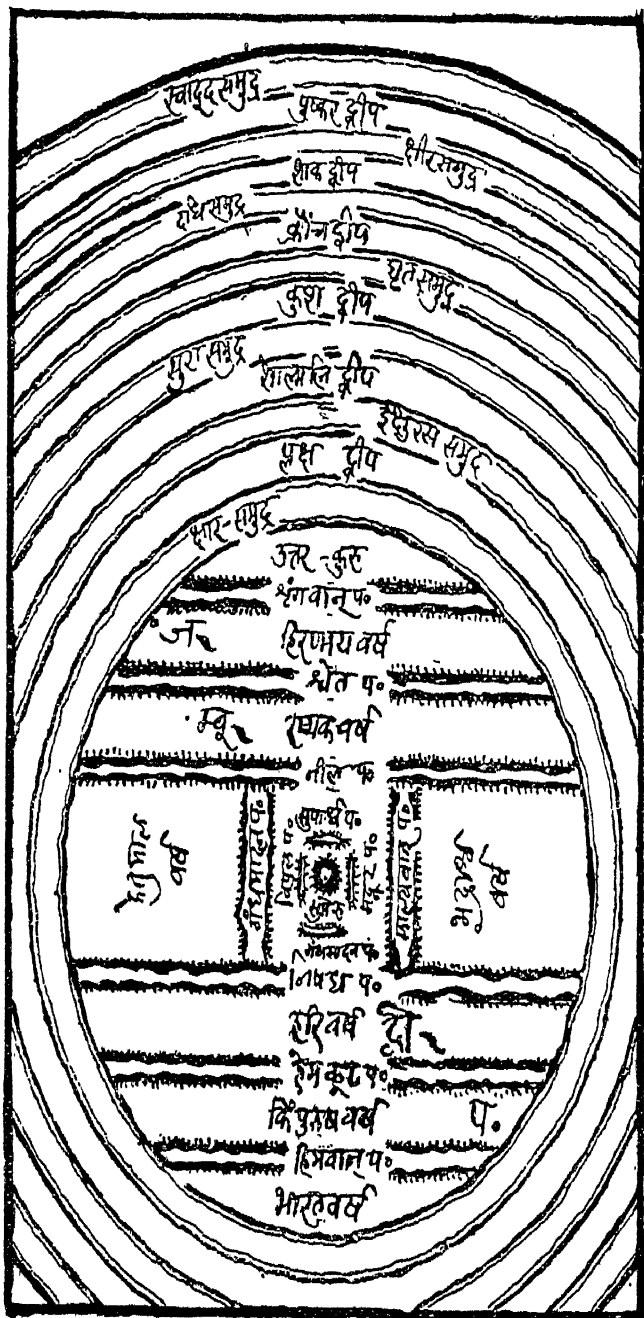 स्वादूदसमुद्र
पुष्कर द्वीप
क्षीरसमुद्र
शाक द्वीप
दधि समुद्र
क्रौंच द्वीप
घृत समुद्र
कुश द्वीप
सुरा समुद्र
शाल्मलि द्वीप
ईक्षुरस समुद्र
प्लक्ष द्वीप
क्षार-समुद्र
उत्तर-कुरु
शृंगवान् प॰
ज॰
हिरण्मय वर्ष
श्वेत प॰
म्बू॰
रम्यक वर्ष
नील प॰
केतुमाल
वर्ष
गंधमादन प॰
विपुल प॰
सुपार्श्व प॰
सुमेरु
माल्यवान् प॰
भद्राश्व
वर्ष
निषध प॰
हरि वर्ष
द्वी॰
हेमकूट प॰
किंपुरुष वर्ष
प॰
हिमवान् प॰
भारतवर्ष